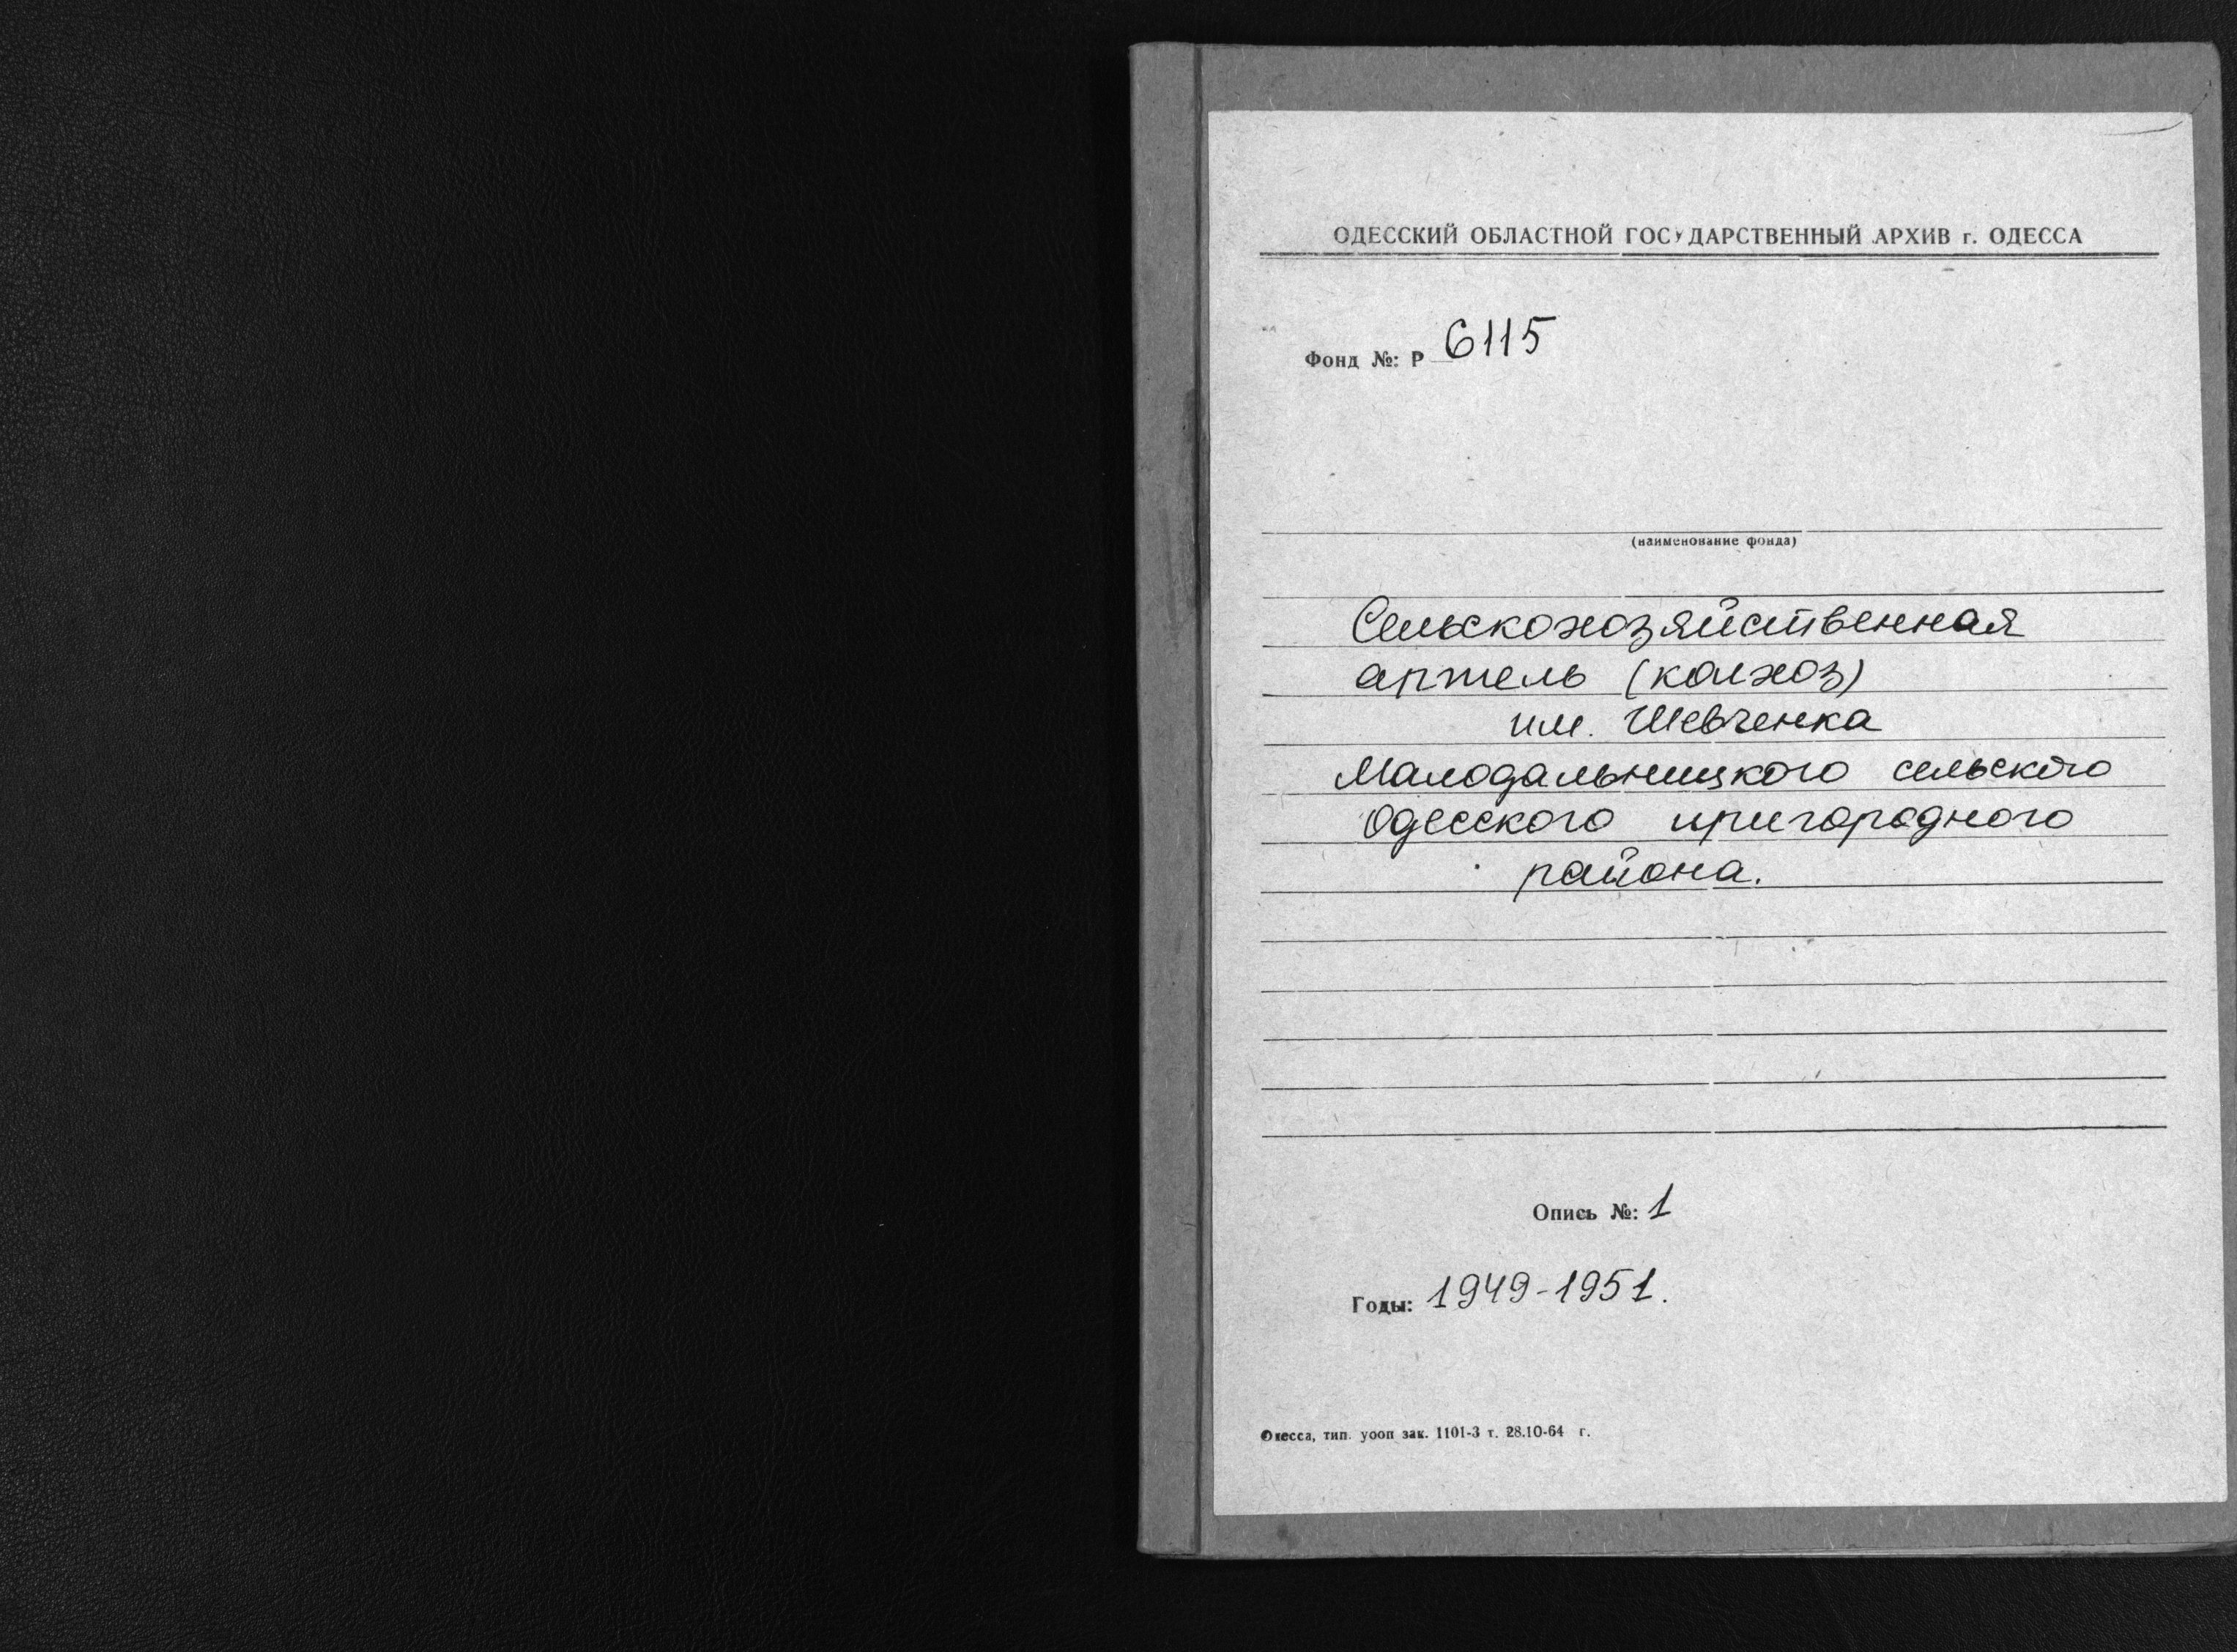 ОДЕССКИЙ ОБЛАСТНОЙ ГОСУДАРСТВЕННЫЙ АРХИВ г. ОДЕССА
Фонд №: Р 6115
(наименование фонда)
Сельскохозяйственная
артель (колхоз)
им. Шевченка
Малодальницкого сельского
Одесского пригородного
района.
Опись №: 1
Годы: 1949-1951.
Одесса, тип. уооп зак. 1101-3 т. 28.10-64 г.